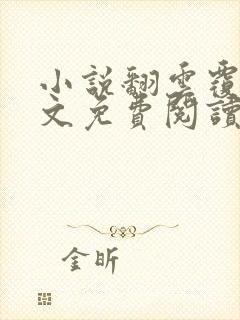 小說翻雲覆
文免費閱讀
金昕